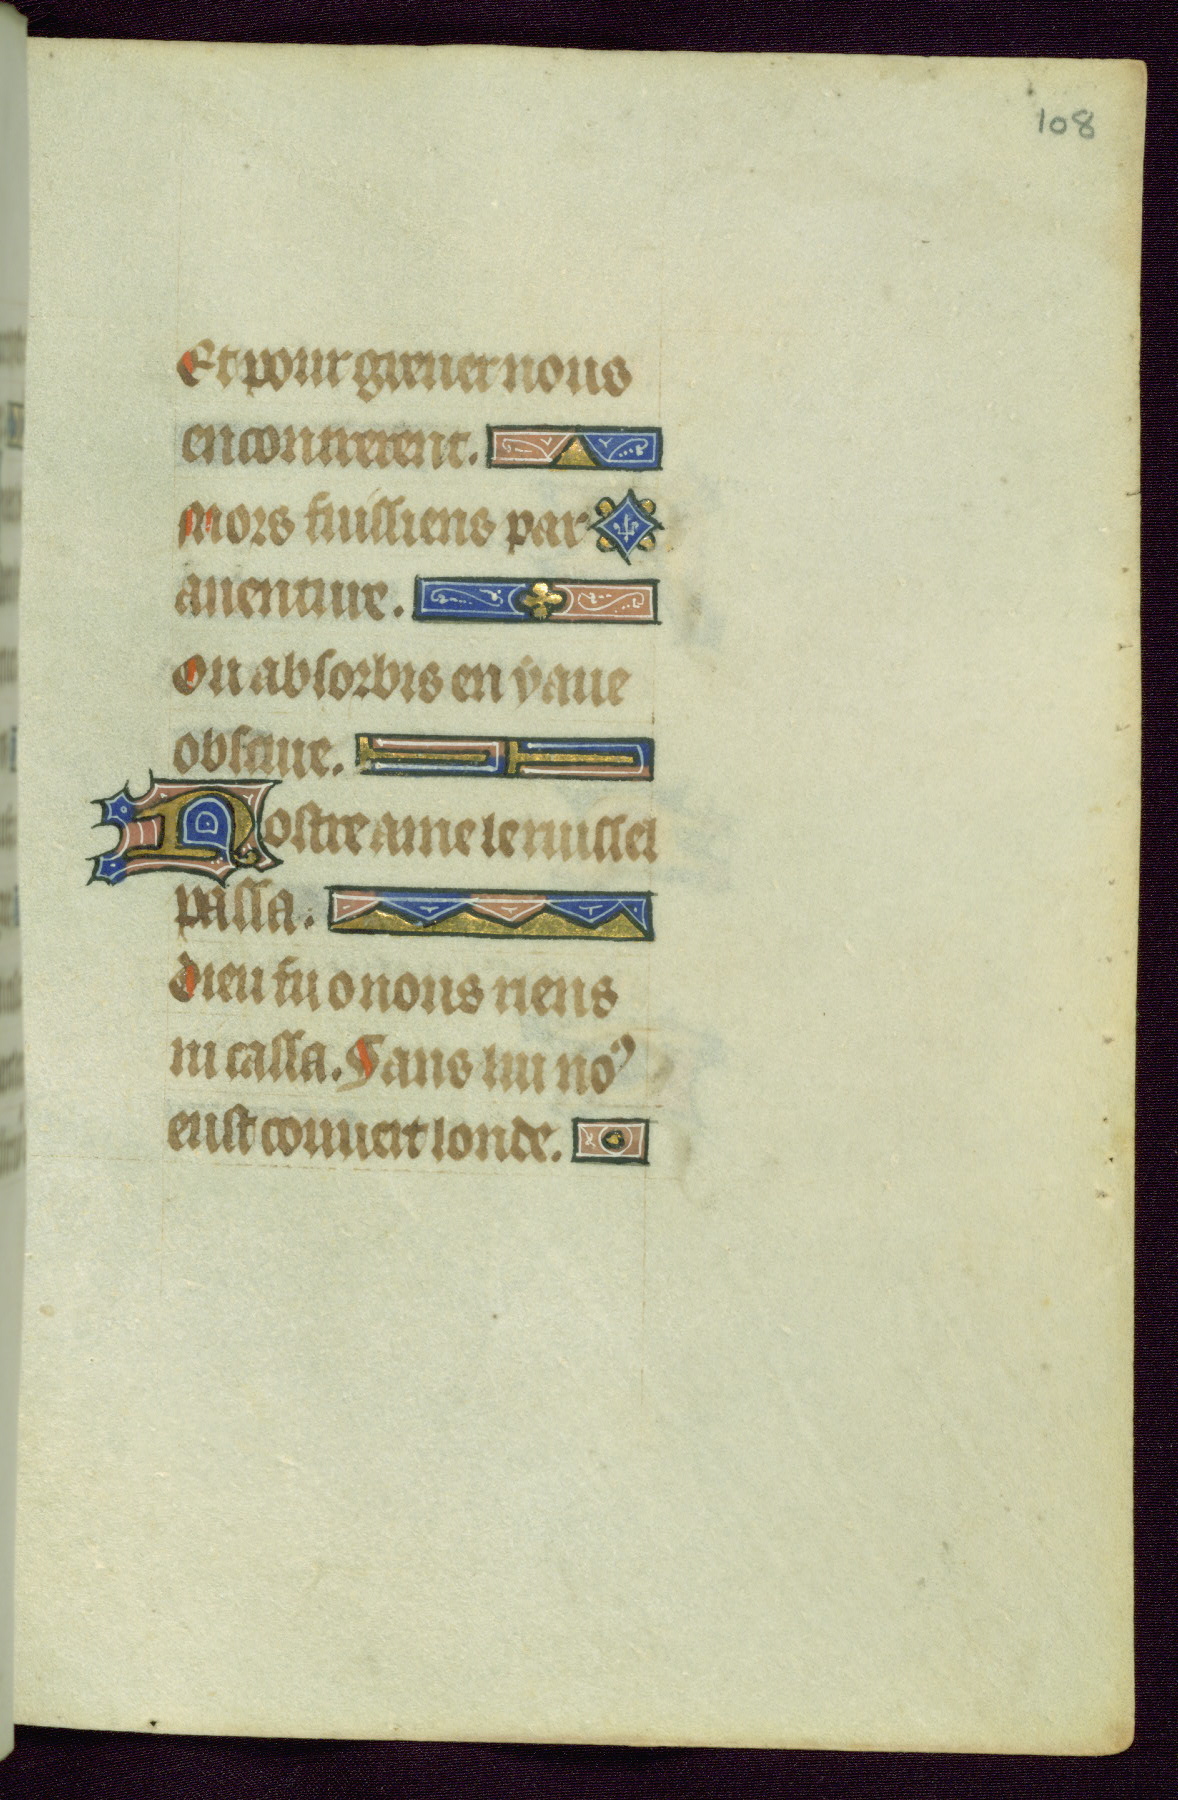 108
Et pour greuer nous
encontrerent.
Mors fuissiens par
auenture.
Ou absorbis en yaue
obscure.
Nostre ame le ruissel
passa.
Dieu fu o nous riens
ni cassa. Sans lui no⁹
eust couuert londe.